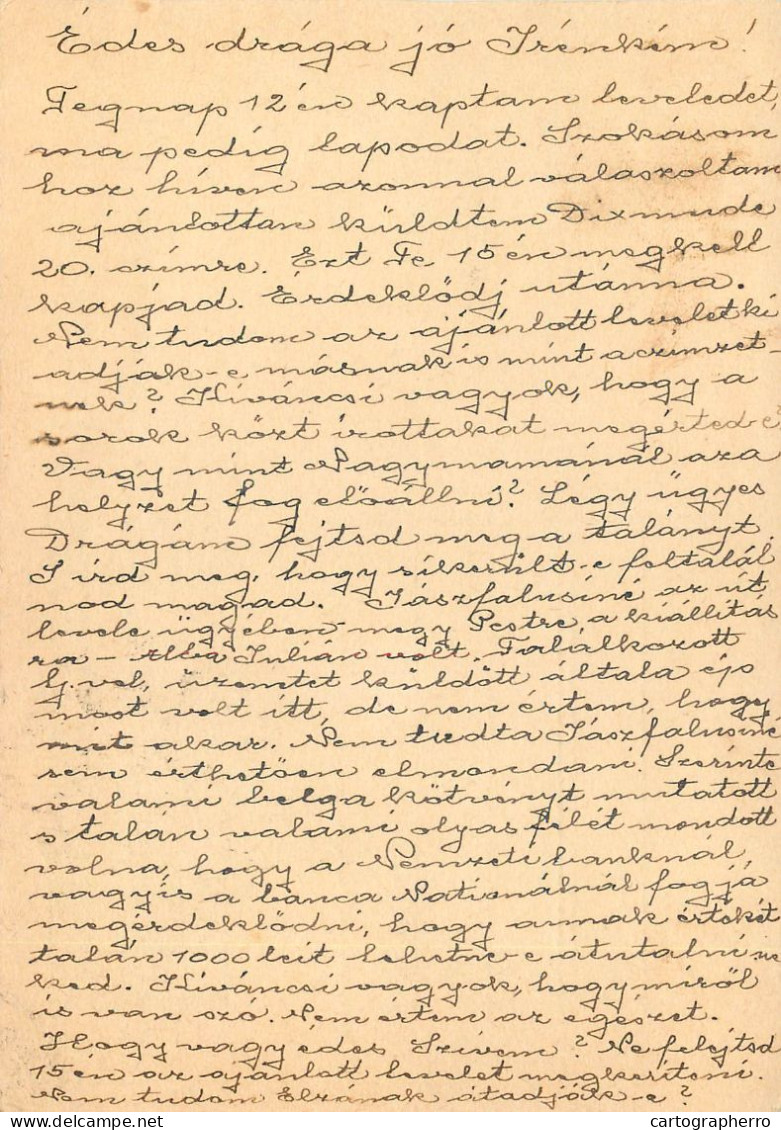 Édes drága jó Irénkém!
Tegnap 12 én kaptam leveledet,
ma pedig lapodat. Szokásom
hoz híven azonnal válaszoltam
ajánlottan küldtem Dixmude
20. címre. Ezt Te 15 én megkell
kapjad. Érdeklődj utánna.
Nem tudom az ajánlott levelet ki
adják-e másnak is mint a czimzet-
nek? Kíváncsi vagyok, hogy a
sorok közt írottakat megérted-e?
Vagy mint Nagymamánál az a
helyzet fog előállni? Légy ügyes
Drágám fejtsd meg a talányt.
S írd meg, hogy sikerült-e feltalál
nod magad. Jászfalusiné az út
levele ügyében megy Pestre a kiállítás
ra - Alba Julián volt. Találkozott
G. vel, üzenetet küldött általa épp
most volt itt, de nem értem, hogy
mit akar. Nem tudta Jászfalusiné
sem érthetően elmondani. Szerinte
valami belga kötvényt mutatott
s talán valami olyas félét mondott
volna, hogy a Nemzeti banknál,
vagyis a banca Nationálnál fogja
megérdeklődni, hogy annak értékét
talán 1000 leit lehetne-e átutalni ne
ked. Kíváncsi vagyok, hogy miről
is van szó. Nem értem az egészet.
Hogy vagy édes Szívem? Ne felejtsd
15 én az ajánlott levelet megkeríteni.
Nem tudom Elzának átadják-e?
cartographerro